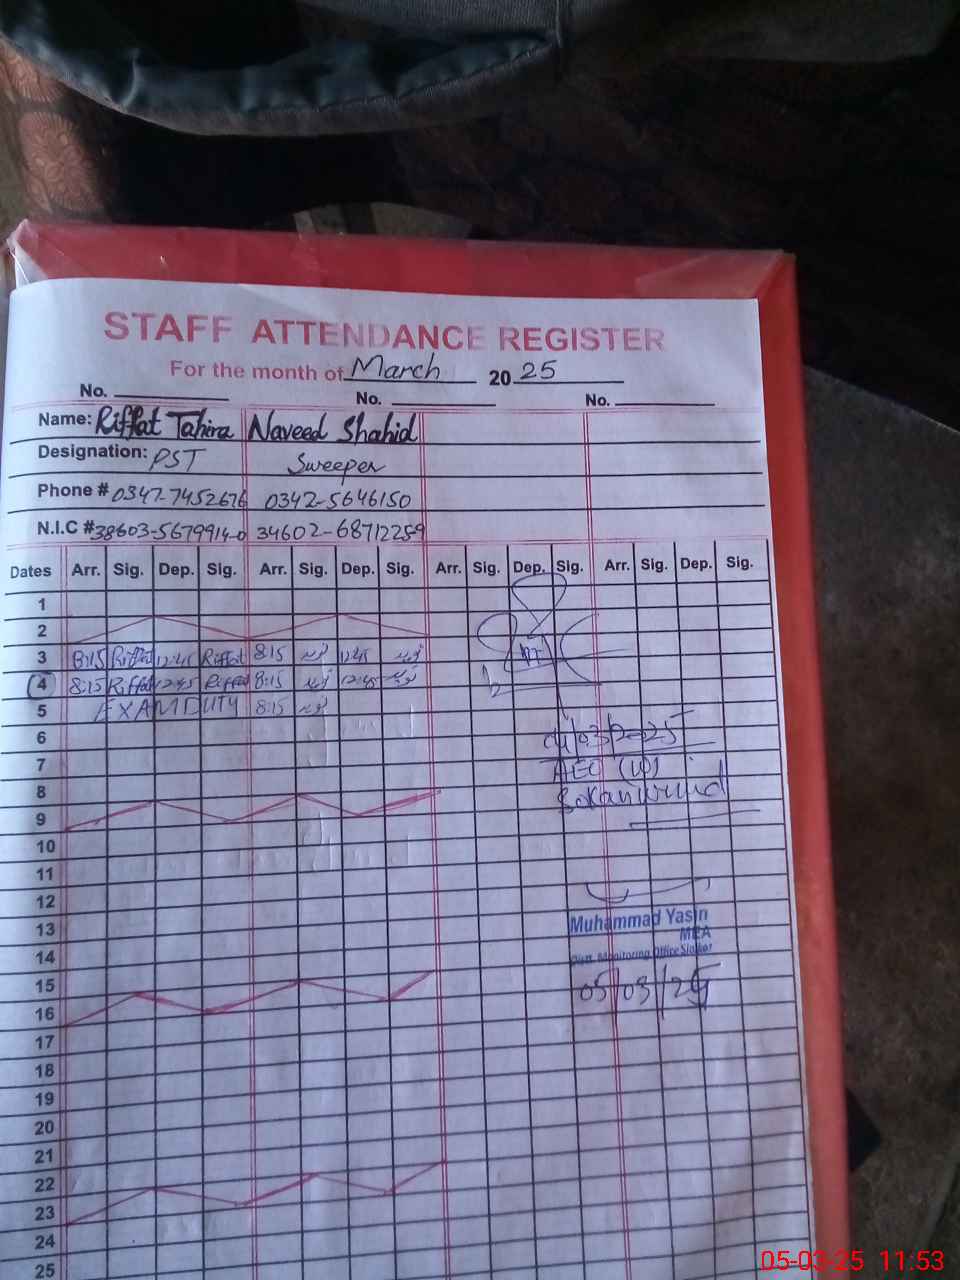 STAFF ATTENDANCE REGISTER
For the month of March 20 25
No. No. No.
Name: Riffat Tahira Naveed Shahid
Designation: PST Sweeper
Phone # 0347-7452676 0342-5646150
N.I.C # 38603-5679914-0 34602-6871225-9
Dates Arr. Sig. Dep. Sig. Arr. Sig. Dep. Sig. Arr. Sig. Dep. Sig. Arr. Sig. Dep. Sig.
1
2
3 8:15 Riffat 12:45 Riffat 8:15 نوید 12:45 نوید
4 8:15 Riffat 12:45 Riffat 8:15 نوید 12:45 نوید
5 EXAM DUTY 8:15 نوید
6
04/03/2025
7
AEO (W)
8
9
10
11
12
13
Muhammad Yasin
MEA
14
Distt. Monitoring Office Sialkot
15
05/03/25
16
17
18
19
20
21
22
23
24
25
05-03-25 11:53